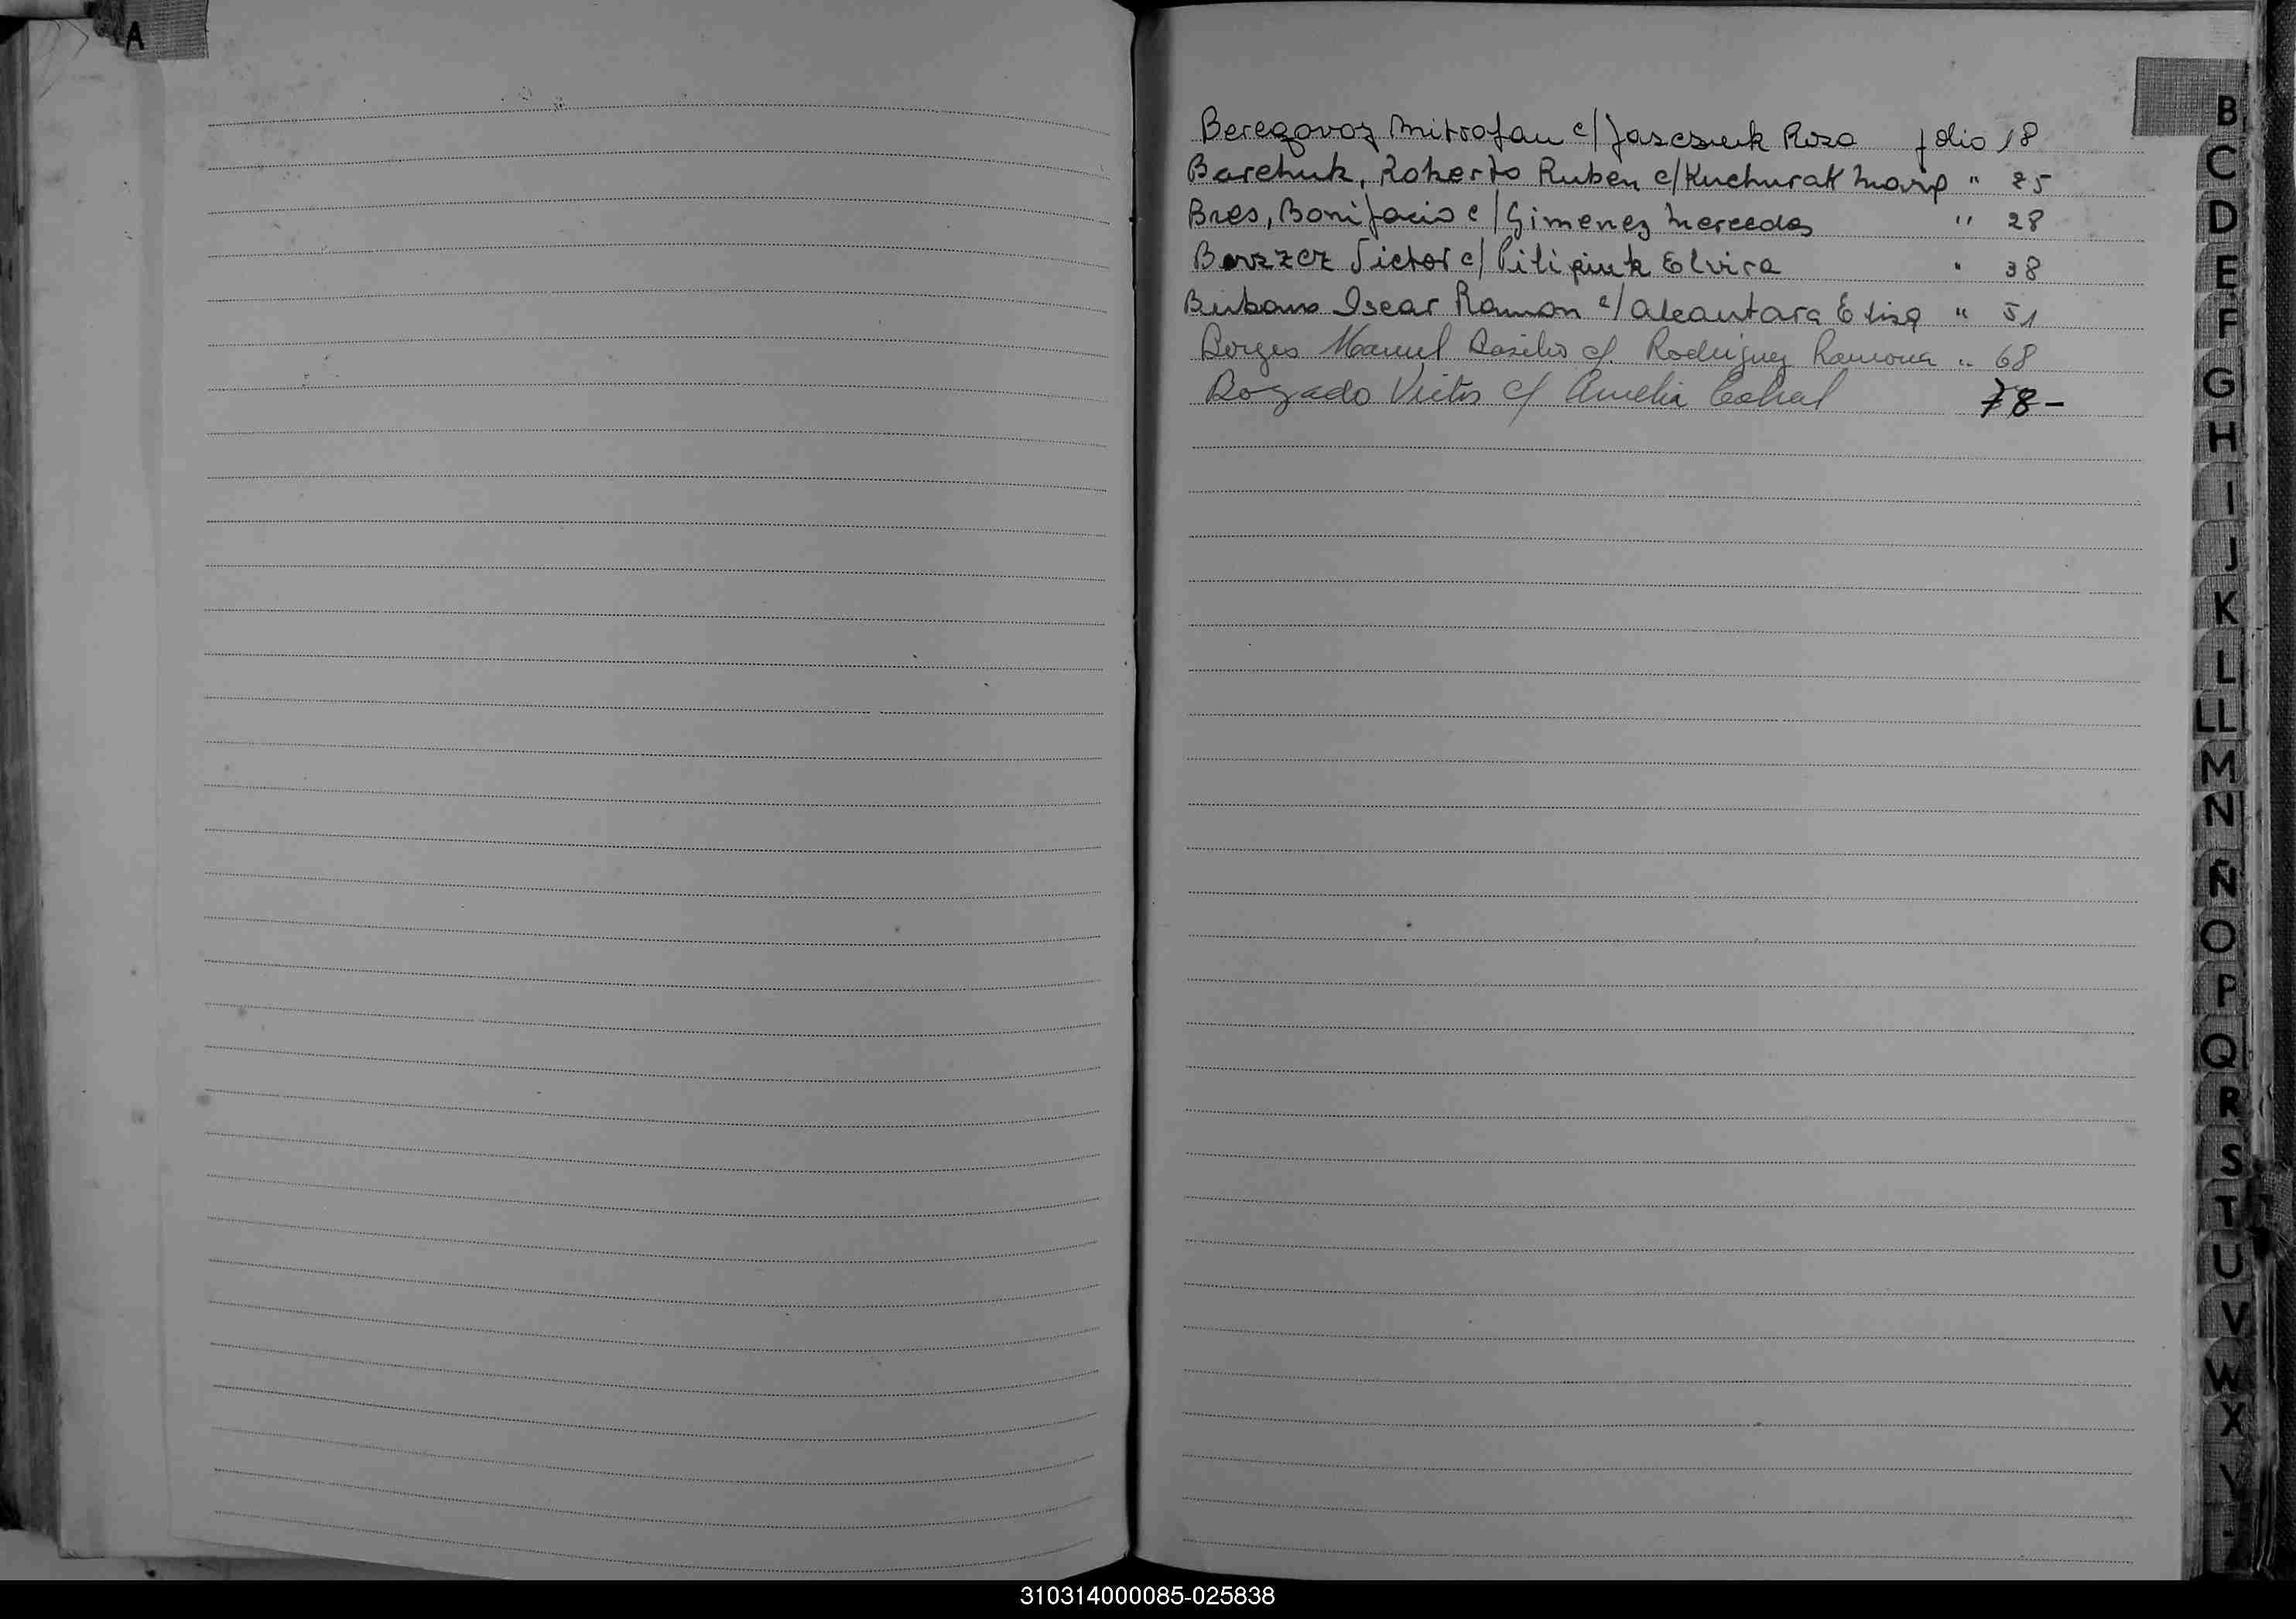 A
Beregovoz Mitrofan c/Jasczuk Rosa folio 18
Barchuk, Roberto Ruben c/Kuchurak " 25
Bres, Bonifacio c/Gimenez Mercedes " 28
Victor c/Pilipiuk Elvira " 38
Oscar Ramon c/Alcantara Elisa " 51
Borges Manuel Basilio c/. Rodriguez Ramona " 68
Bogado Victor c/ Amelia Cabral 78-
B
C
D
E
F
G
H
I
J
K
L
LL
M
N
Ñ
O
P
Q
R
S
T
U
V
W
X
Y
310314000085-025838